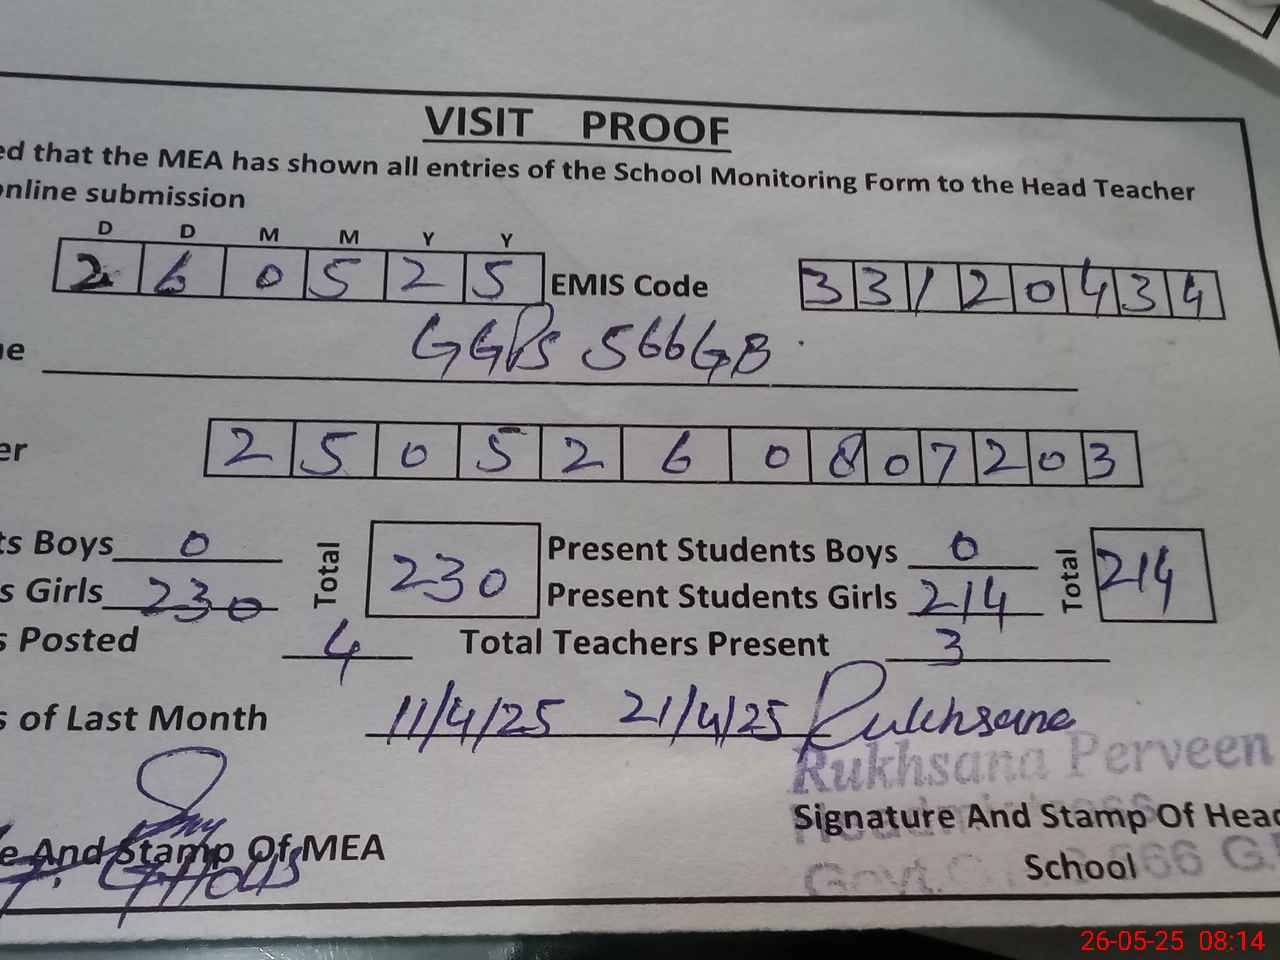 VISIT PROOF
ed that the MEA has shown all entries of the School Monitoring Form to the Head Teacher
online submission
D D M M Y Y
2 6 0 5 2 5 EMIS Code 3 3 1 2 0 4 3 4
e GGPS 566GB
er 2 5 0 5 2 6 0 8 0 7 2 0 3
ts Boys 0 Total 230 Present Students Boys 0 Total 214
s Girls 230 Present Students Girls 214
s Posted 4 Total Teachers Present 3
s of Last Month 11/4/25 21/4/25 Rukhsana
Rukhsana Perveen
Signature And Stamp Of Head
e And Stamp Of MEA
School
Govt. 566 G.
26-05-25 08:14